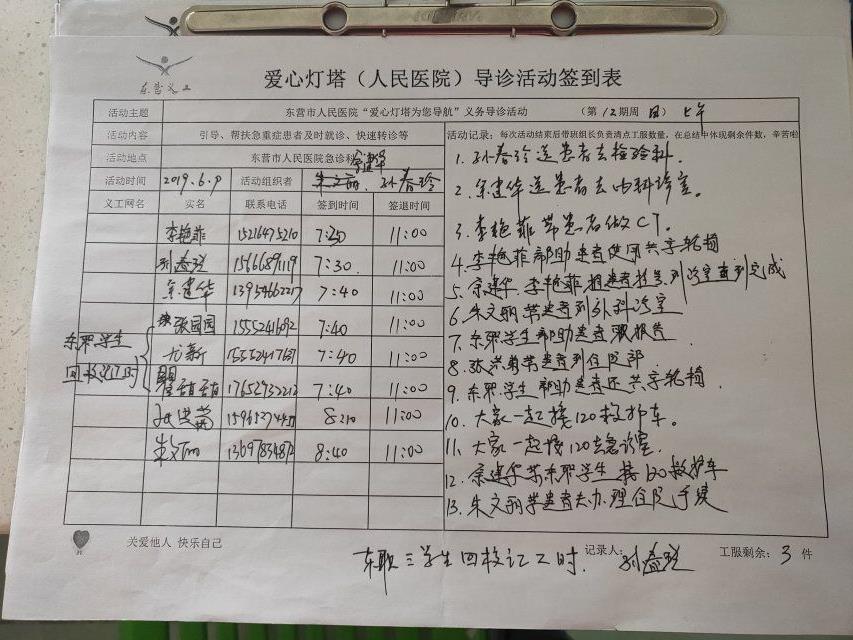 东营义工
爱心灯塔（人民医院）导诊活动签到表
活动主题 东营市人民医院“爱心灯塔为您导航”义务导诊活动 （第12期周日）上午
活动内容 引导、帮扶急重症患者及时就诊、快速转诊等
活动地点 东营市人民医院急诊科
活动时间 2019.6.9 活动组织者 宗建华 朱文丽、孙春玲
义工网名 实名 联系电话 签到时间 签退时间
李艳菲 15216475210 7:30 11:00
孙春玲 15666891119 7:30 11:00
宗建华 13954662217 7:40 11:00
张园园 1555241692 7:40 11:00
尤新 15552417637 7:40 11:00
17652932212 7:40 11:00
8:10 11:00
朱文丽 13697834872 8:40 11:00
东职学生
回校记工时
活动记录：每次活动结束后带班组长负责清点工服数量，在总结中体现剩余件数，辛苦啦
1. 孙春玲送患者去检验科.
2. 宗建华送患者去内科诊室。
3. 李艳菲带患者做CT.
4. 李艳菲帮助患者使用共享轮椅
5. 宗建华、李艳菲 患者挂号,到诊室 到完成
6. 朱文丽带患者到外科诊室
7. 东职学生帮助患者取报告
8. 带患者到住院部.
9. 东职学生帮助患者还共享轮椅.
10. 大家一起接120救护车。
11. 大家一起接120去急诊室.
12. 宗建华带东职学生接120救护车
13. 朱文丽带患者去办理住院手续
关爱他人 快乐自己
东职三学生回校记工时.
记录人： 孙春玲
工服剩余：3 件